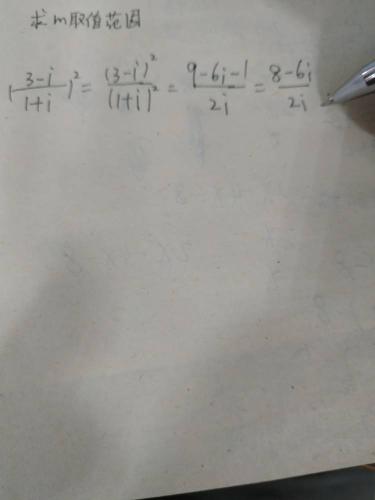 求m取值范围
(3-i/1+i)² = (3-i)²/(1+i)² = 9-6i-1/2i = 8-6i/2i